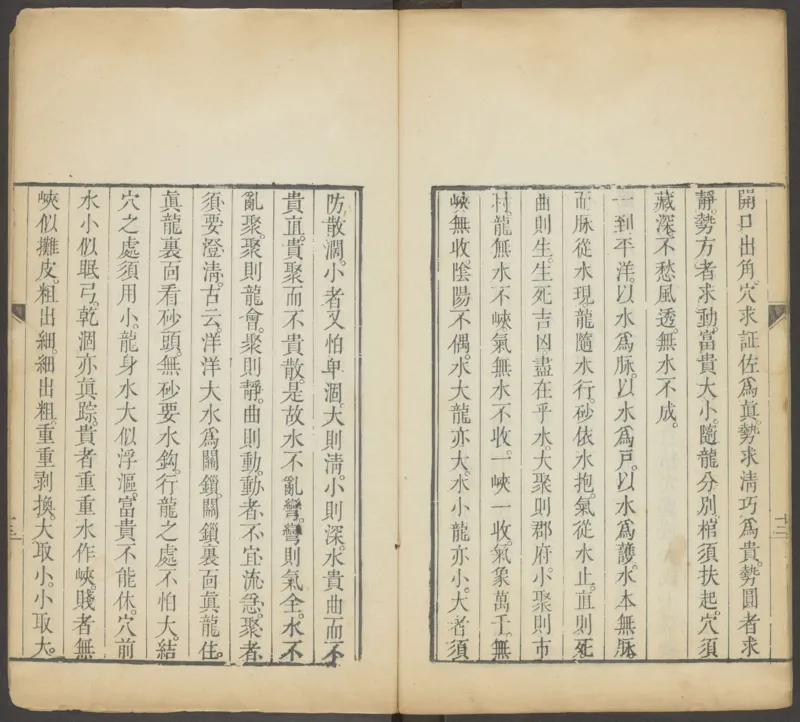 開口出角。穴求証佐爲眞。勢求清巧爲貴。勢圓者求
靜。勢方者求動。富貴大小。隨龍分別。棺須扶起。穴須
藏深。不愁風透。無水不成。
一到平洋。以水爲脉。以水爲戶。以水爲護。水本無脉。
而脉從水現。龍隨水行。砂依水抱。氣從水止。直則死。
曲則生。生死吉凶。盡在乎水。大聚則郡府。小聚則市
村。龍無水不峽。氣無水不收。一峽一收。氣象萬千。無
峽無收。陰陽不偶。水大龍亦大。水小龍亦小。大者須
防散濶。小者又怕卑涸。大則清。小則深。水貴曲而不
貴直。貴聚而不貴散。是故水不亂彎。彎則氣全。水不
亂聚。聚則龍會。聚則靜。曲則動。動者不宜流急。聚者
須要澄清。古云。洋洋大水爲關鎖。關鎖裏面眞龍住。
眞龍裏面看砂頭。無砂要水鈎。行龍之處不怕大。結
穴之處須用小。龍身水大似浮漚。富貴不能休。穴前
水小似眠弓。乾涸亦眞踪。貴者重重水作峽。賤者無
峽似攤皮。粗出細。細出粗。重重剥換。大取小。小取大。
十三